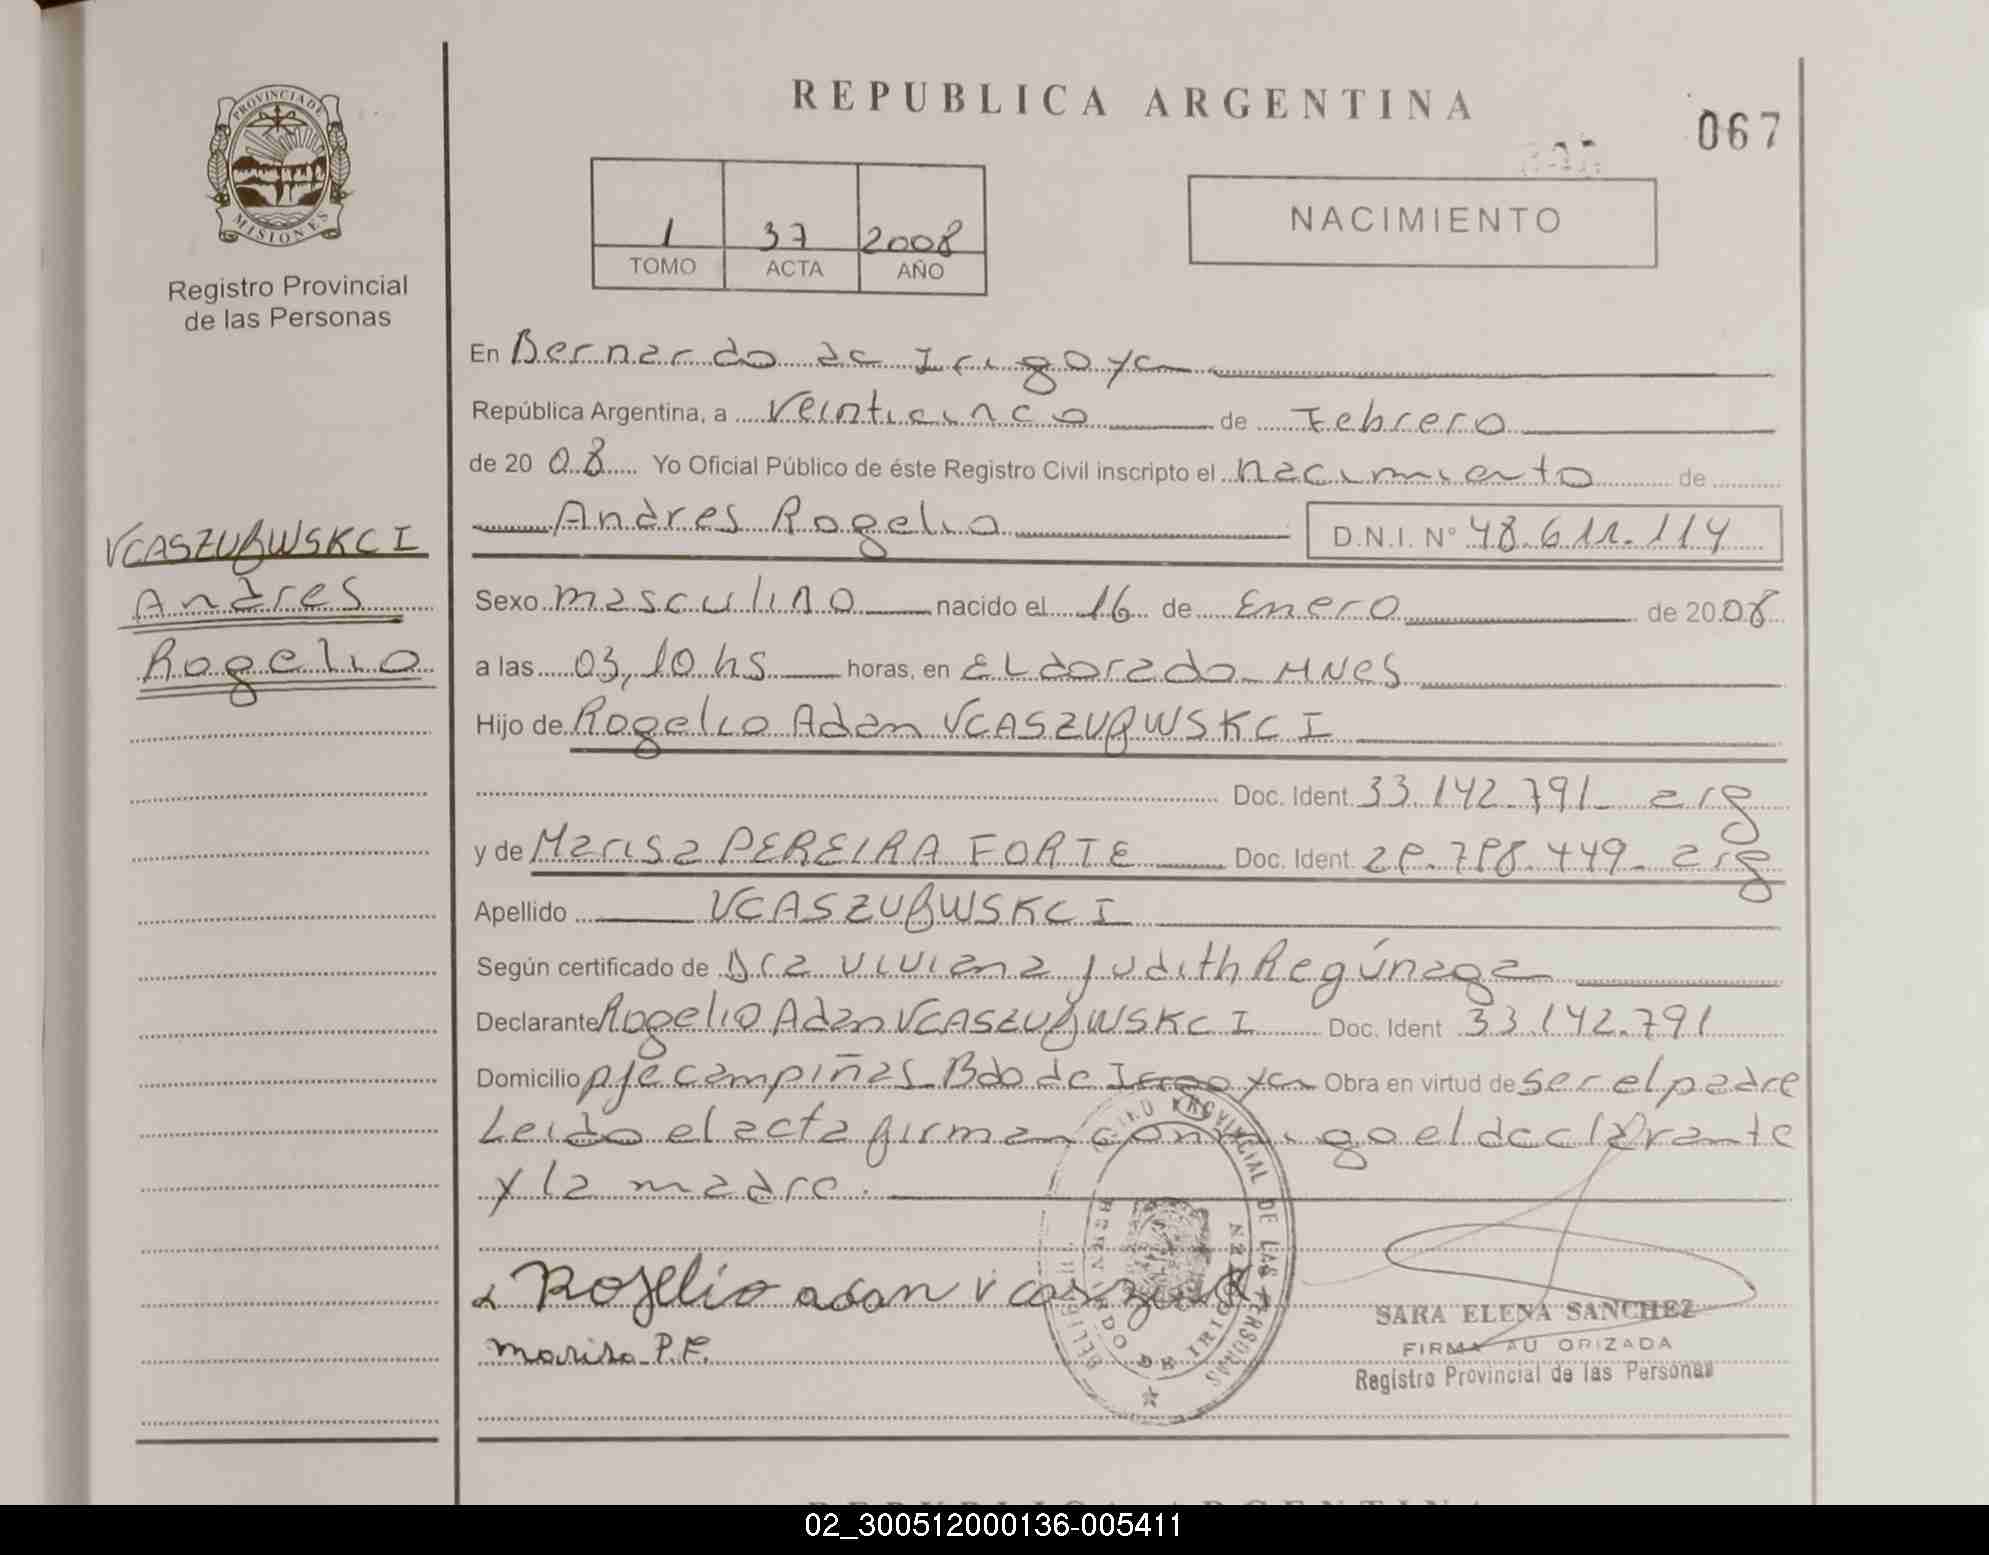 PROVINCIA DE
MISIONES
Registro Provincial
de las Personas
VCASZUBWSKCI
Andres
Rogelio
REPUBLICA ARGENTINA
067
1 37 2008
TOMO ACTA AÑO
NACIMIENTO
En Bernardo de Irigoyen
República Argentina, a Veinticinco de Febrero
de 2008 Yo Oficial Público de éste Registro Civil inscripto el nacimiento de
Andres Rogelio D.N.I. N° 48.611.114
Sexo masculino nacido el 16 de Enero de 2008
a las 03,10 hs horas, en ELdorado MNES
Hijo de Rogelio Adan VCASZUBWSKCI
Doc. Ident. 33.142.791_ arg
y de Marisa PEREIRA FORTE Doc. Ident. arg
Apellido VCASZUBWSKCI
Según certificado de Dra Viviana Judith Regúnaga
Declarante Rogelio Adan VCASZUBWSKCI Doc. Ident 33.142.791
Domicilio pje campiñas Bdo de Irigoyen Obra en virtud de ser el padre
Leido el acta firman conmigo el declarante
y la madre.
Rogelio adan
marisa P.F.
PROVINCIAL DE LAS PERSONAS
BERNARDO DE IRIGOYEN
SARA ELENA SANCHEZ
FIRMA AUTORIZADA
Registro Provincial de las Personas
REPUBLICA ARGENTINA
02_300512000136-005411